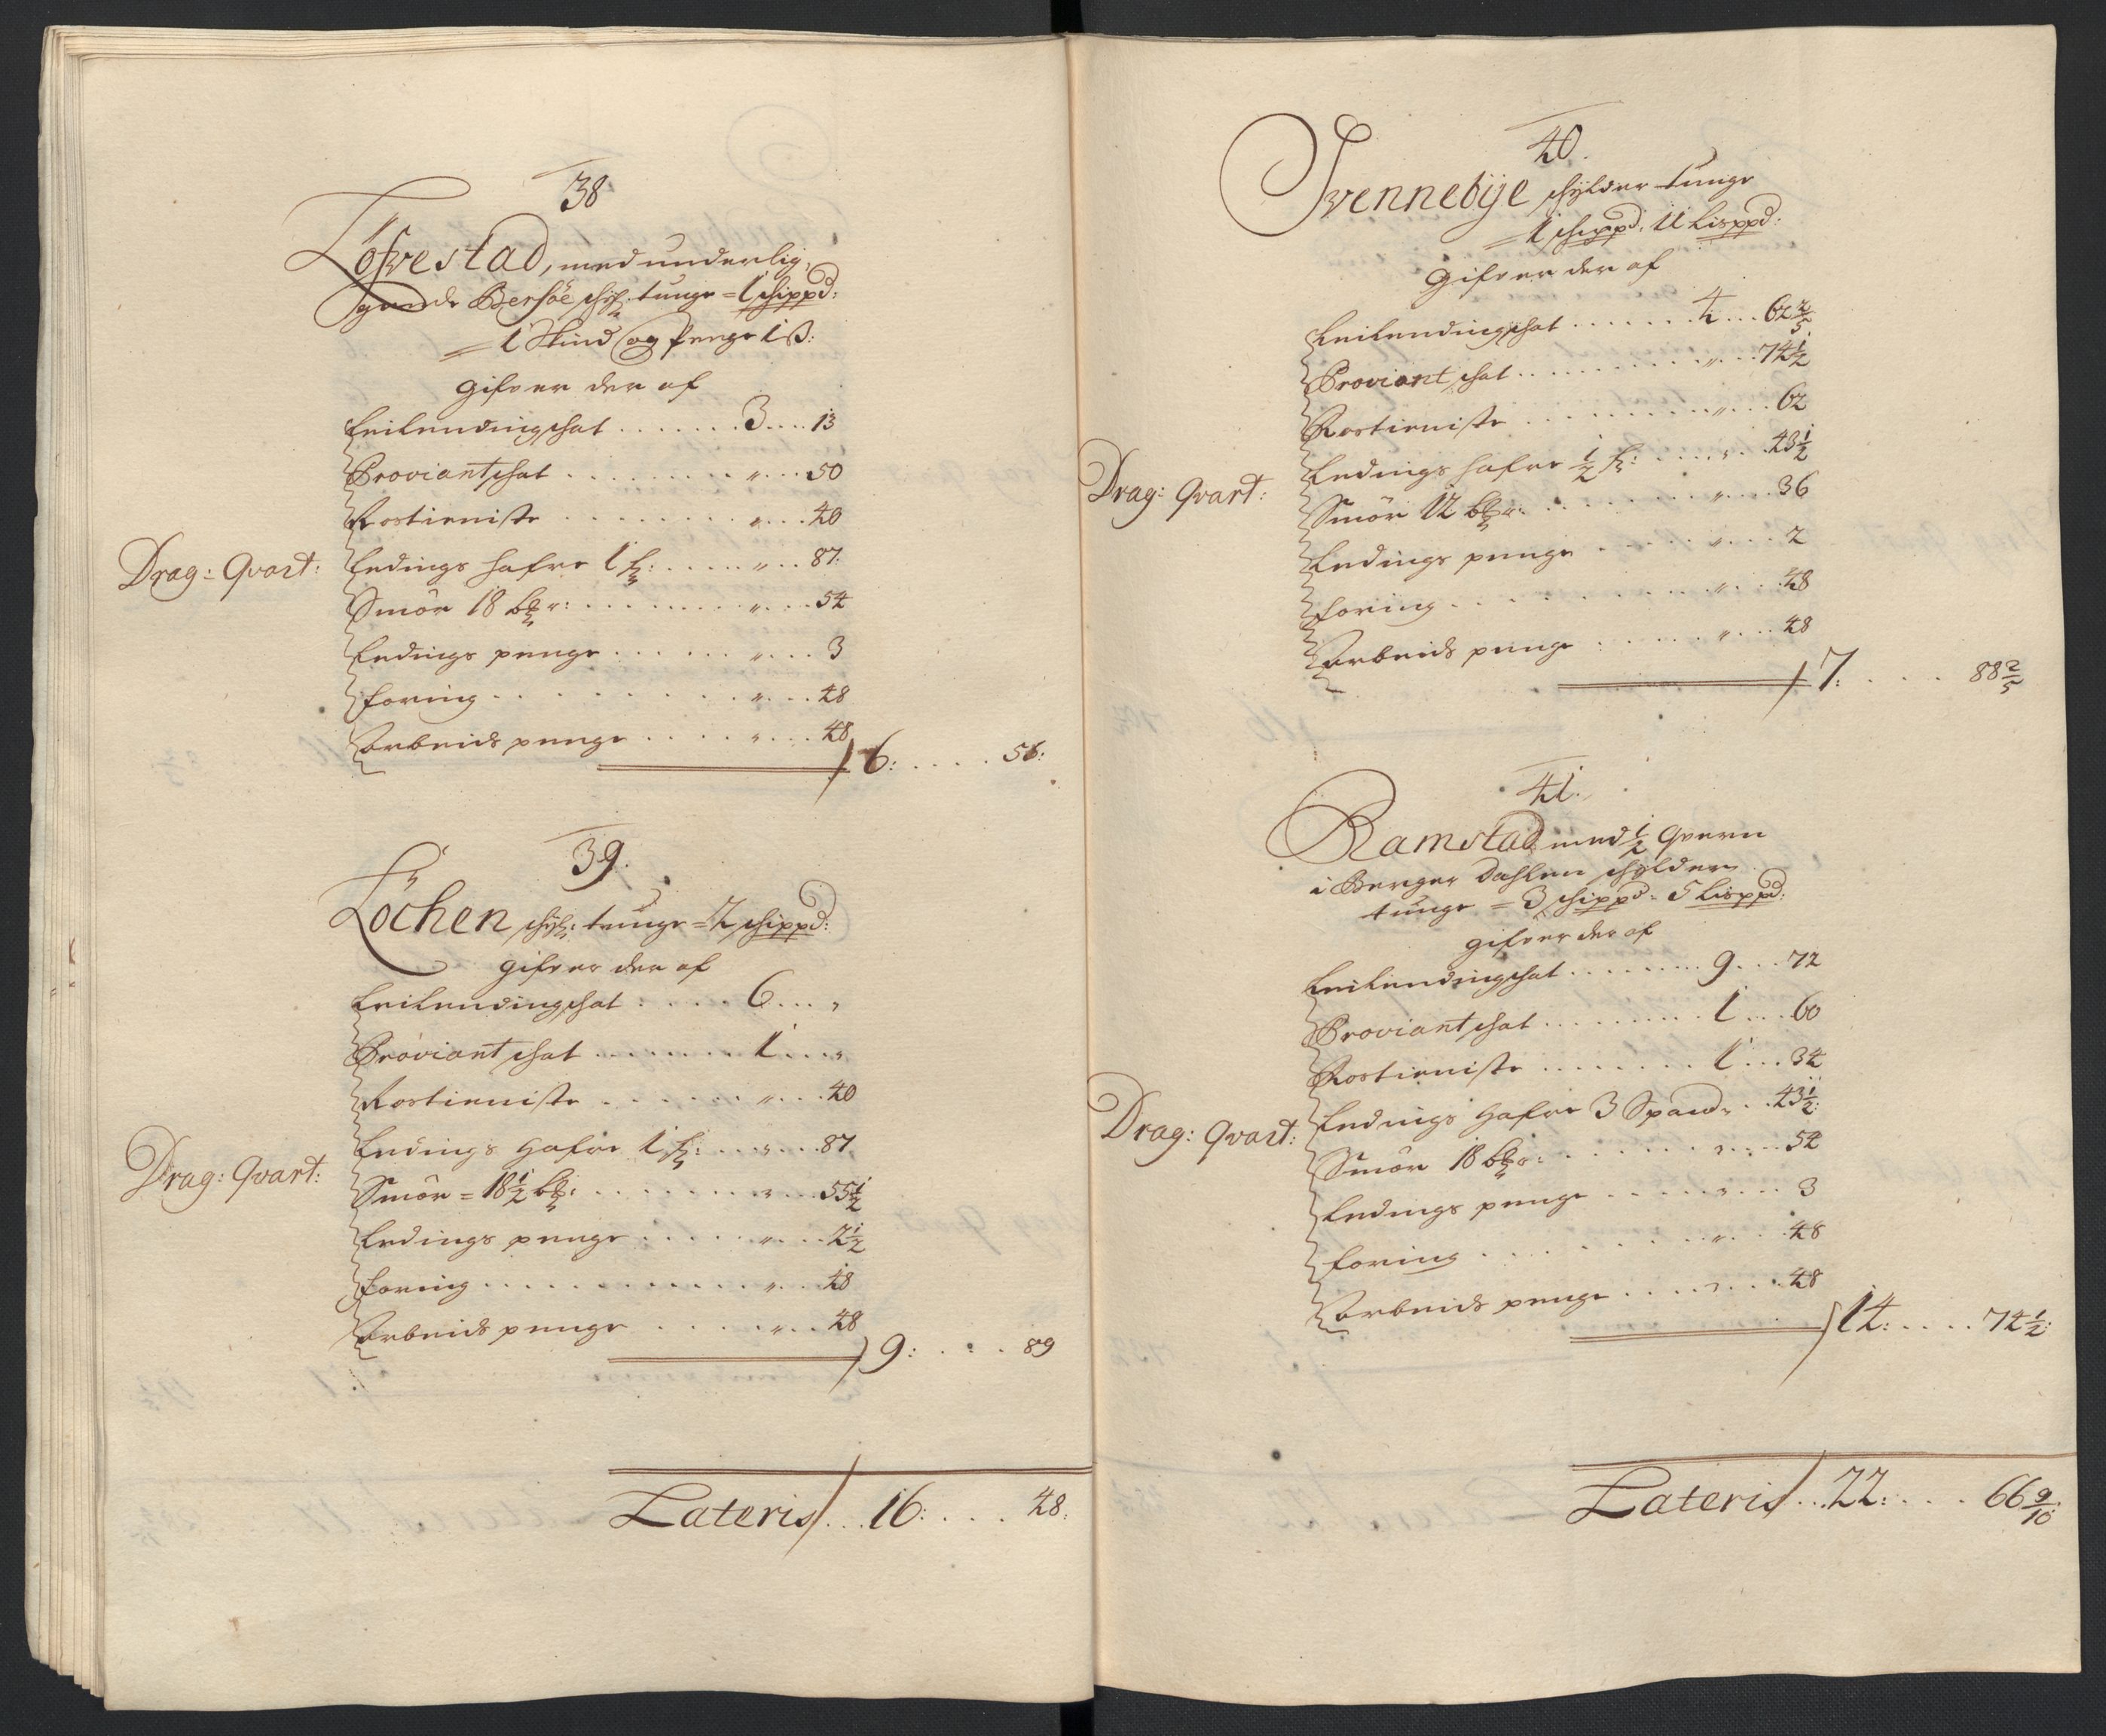 38
Löfvestad, med underlig,
gende Bersöe schÿl: tunge = 1 schippd:
= 1 Skind og Penge 1 ß:
gifver der af
Leilendingschat . . . . . . . 3 . . . . 13
Proviantschat . . . . . . . . . " . . . 50
Rostieniste . . . . . . . . " . . . 40
Drag: Qvart: Ledings hafre 1 : . . . . . " . . 87:
Smör 18 : . . . . . . . . . " . . . 54
Ledings penge . . . . . . " . . . 3
Foring . . . . . . . . . . " . . . 48
Arbeids penge . . . . . " . . . 48
6: . . . . 56:
39.
Löchen schÿl: tunge = 2 schippd:
gifver der af
Leilendingschat . . . . . 6 . . . "
Proviant schat . . . . . . . 1 . . . "
Rostieniste . . . . . . . " . . . 40
Drag: Qvart: Ledings Hafre 1 : . . . " . . . 87
Smör = 18 1/2 : . . . . . . . " . . . 55 1/2
Ledings penge . . . . . " . . . 2 1/2
Foring . . . . . . . . . . . " . . 48
Arbeids penge . . . . . " . . 48
9: . . . . 89
Lateris . . . 16: . . . . 48:
40.
Svennebÿe schÿlder tunge
= 1 schippd. 11 Lisppd:
gifver der af
Leilendingschat . . . . . . . 4 . . . 62 2/5
Proviant schat . . . . . . . . . " . . . 74 1/2
Rostieniste . . . . . . . . . " . . . 62
Drag: Qvart: Ledings hafre 1/2 : . . . . " . . 43 1/2
Smör 12 : . . . . . . . . " . . . 36
Ledings penge . . . . . " . . . 2
Foring . . . . . . . . . . " . . . 48
Arbeids penge . . . . . " . . . 48
7: . . . . 88 2/5
41.
Ramstad med 1/2 Qvern
i Berger Dahlen schÿlder
tunge = 3 schippd. 5 Lisppd:
gifver der af
Leilendingschat . . . . . . . . 9 . . . 72
Proviant schat . . . . . . . . . 1 . . . 60
Rostieniste . . . . . . . . 1 . . . 34
Drag: Qvart: Ledings Hafre 3 Spand " . . 43 1/2:
Smör 18 : . . . . . . . " . . . 54
Ledings penge . . . . . " . . . 3
Foring . . . . . . . . . " . . . 48
Arbeids penge . . . . " . . . 48
14: . . . . 74 1/2:
Lateris . . 22: . . . . 66 9/10: